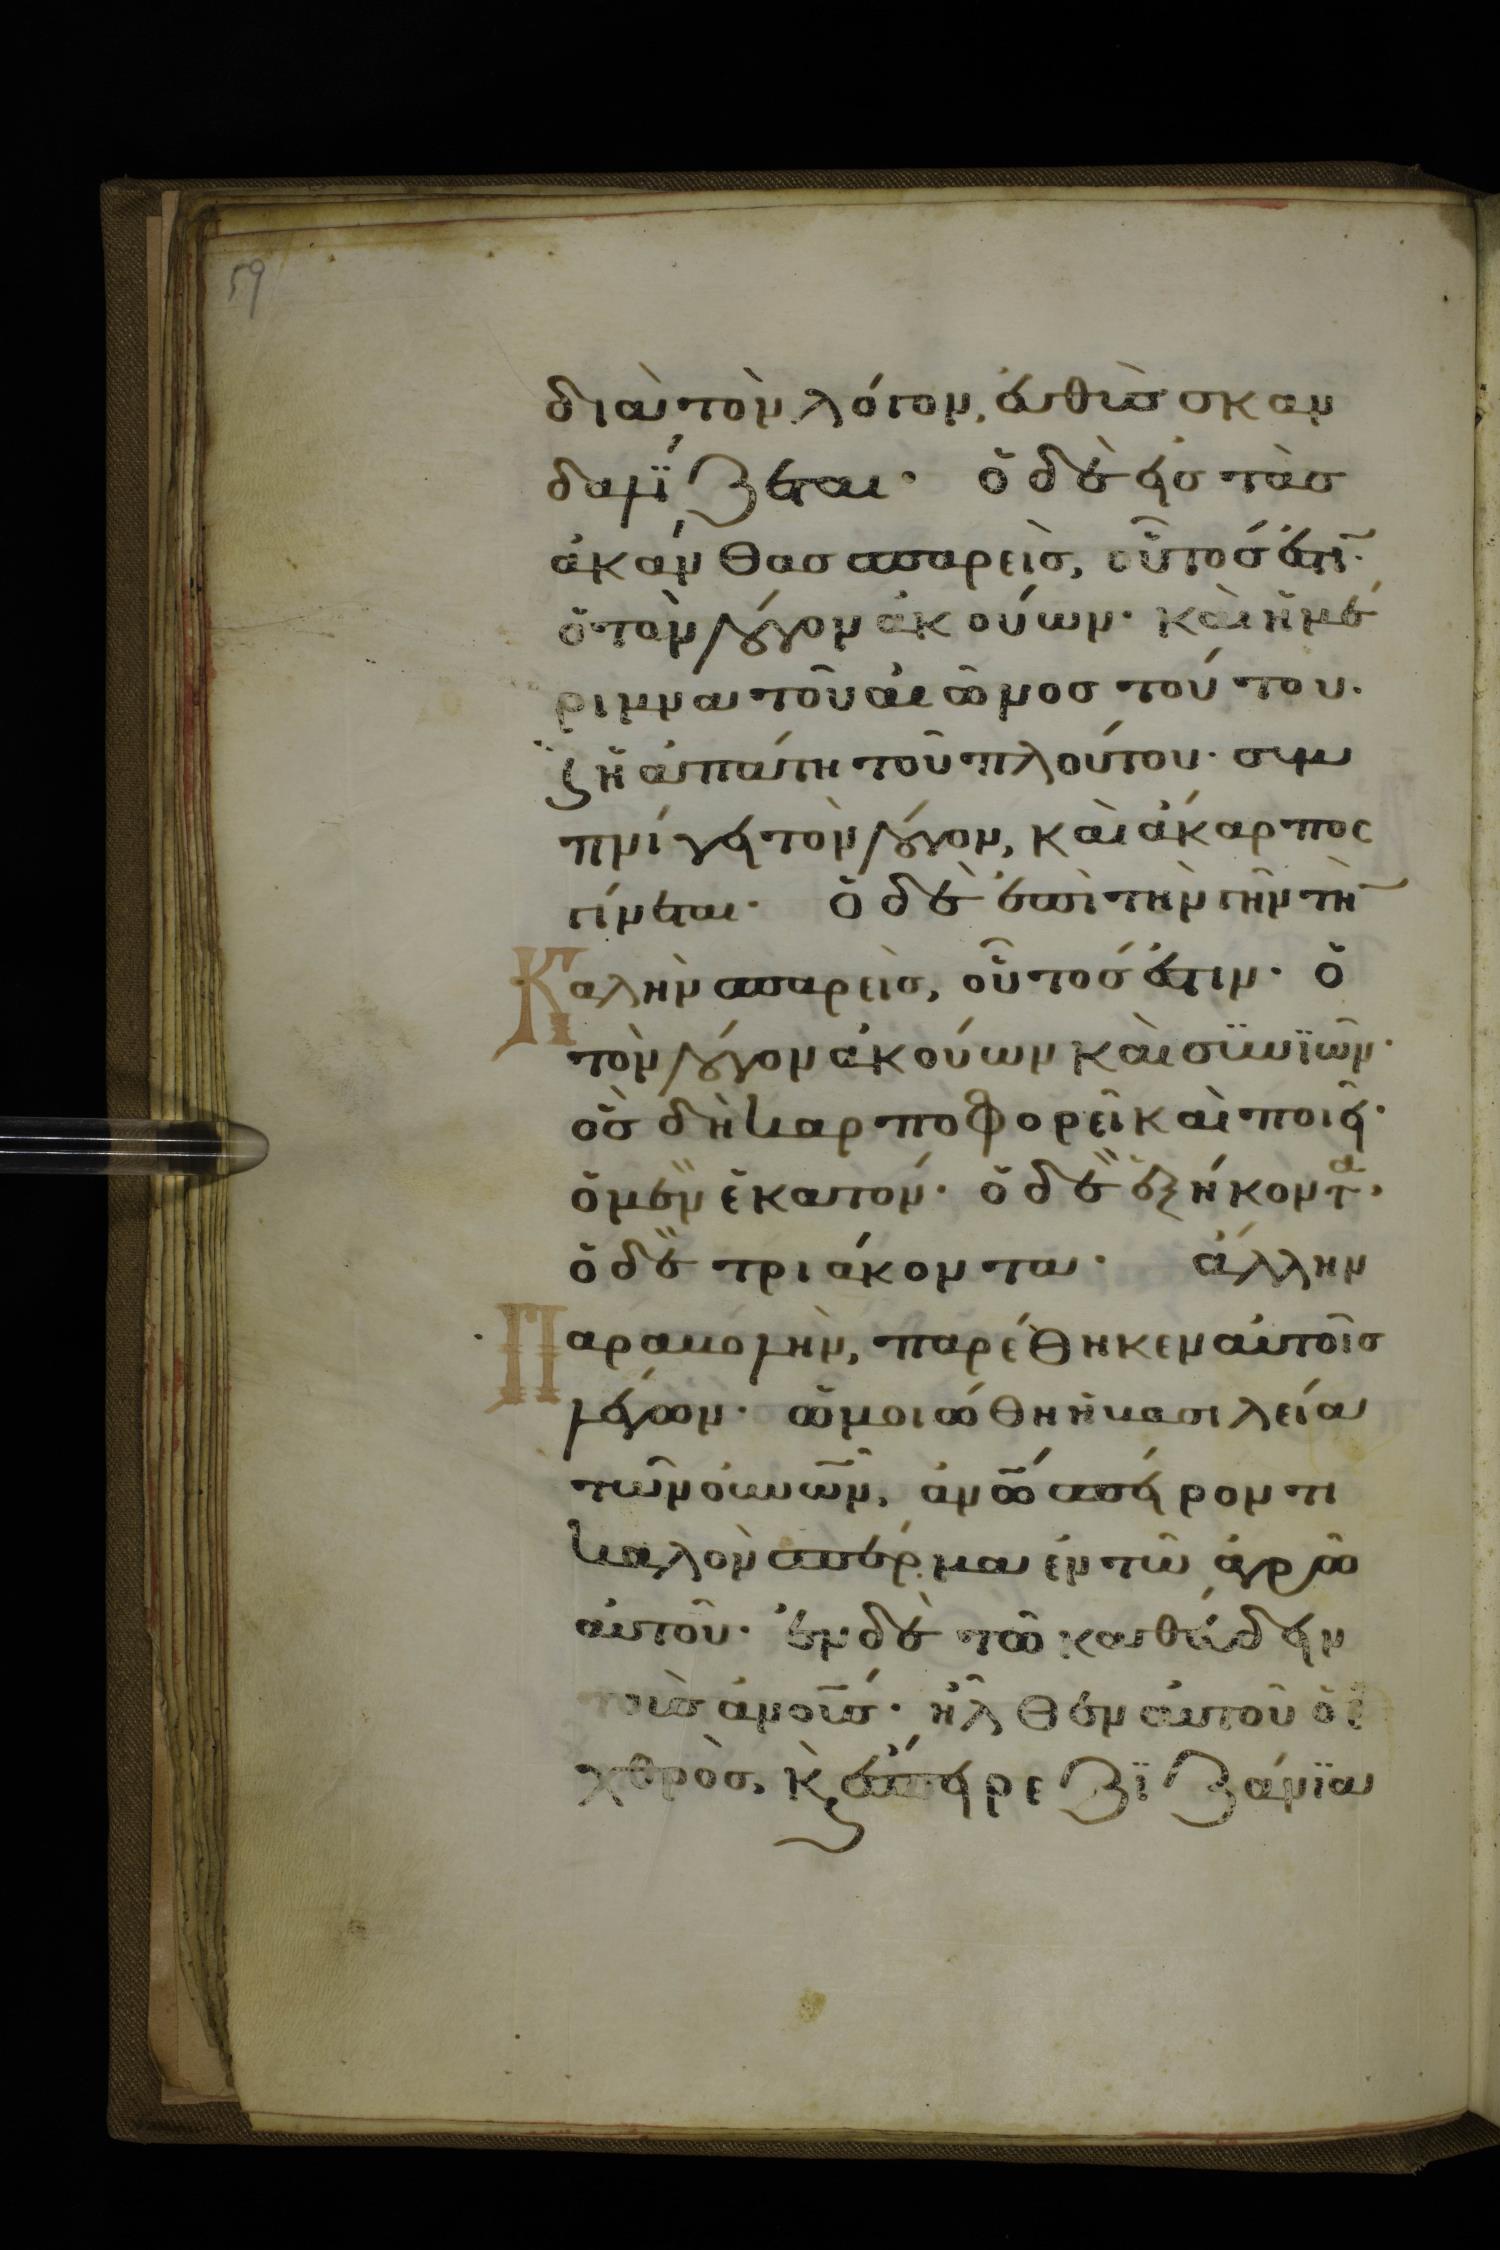 59
διὰ τὸν λόγον, εὐθὺς σκαν
δαλΐζεται· ὁ δὲ εἰς τὰς
ἀκάνθας σπαρεὶς, οὗτός ἐστῖ·
ὁ τὸν λόγον ἀκούων· καὶ ἡ μέ
ριμνα τοῦ αἰῶνος τούτου·
ϗ ἡ ἀπάτη τοῦ πλούτου· συμ
πνίγει τὸν λόγον, καὶ ἄκαρπος
γίνεται· ὁ δὲ ἐπὶ τὴν γῆν τὴ̅
Καλὴν σπαρεὶς, οὗτός ἐστιν· ὁ
τὸν λόγον ἀκούων καὶ συνϊῶν·
ὃς δὴ καρποφορεῖ καὶ ποιεῖ·
ὁ μὲν ἑκατόν· ὁ δὲ ἑξήκοντα·
ὁ δὲ τριάκοντα· ἄλλην
Παραβολὴν, παρέθηκεν αὐτοῖς
λέγων· ὡμοιώθη ἡ βασιλεία
τῶν οὐνῶν, ἀνω̅ σπείροντι
καλὸν σπέρμα ἐν τῶ ἀγρῶ
αὐτοῦ· ἐν δὲ τῶ καθεύδειν
τοὺς ἀνους· ἦλθεν αὐτοῦ ὁ ἐ
χθρὸς, ϗ ἔσπειρε ζϊζάνϊα